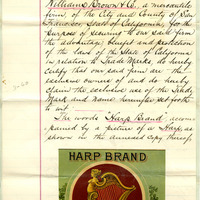 William Brown & Co., a mercantile
firm, of the City and County of San
Francisco State of California, for the
purpose of securing to our said firm
the advantage, benefit and protection
of the Laws of the State of California
in relation to Trade Marks, do hereby
certify that our said firm are the
exclusive owners of and do hereby
claim the exclusive use of the Trade
Mark and Name hereinafter set forth
to wit
The words "Harp Brand" accom
panied by a picture of a Harp, as
shown in the annexed copy thereof,
HARP BRAND